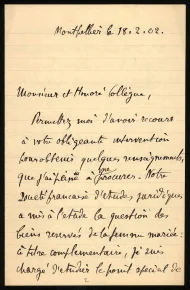 Montpellier le 18.2.02.
Monsieur et Honoré Collègue,
Permettez moi d'avoir recours
à votre obligeante intervention
pour obtenir quelques renseignements,
que j'ai peine à me procurer. Notre
Société française d'études juridiques
a mis à l'étude la question des
biens reservés de la femme mariée:
à titre complémentaire, je suis
chargé d'étudier le point spécial de